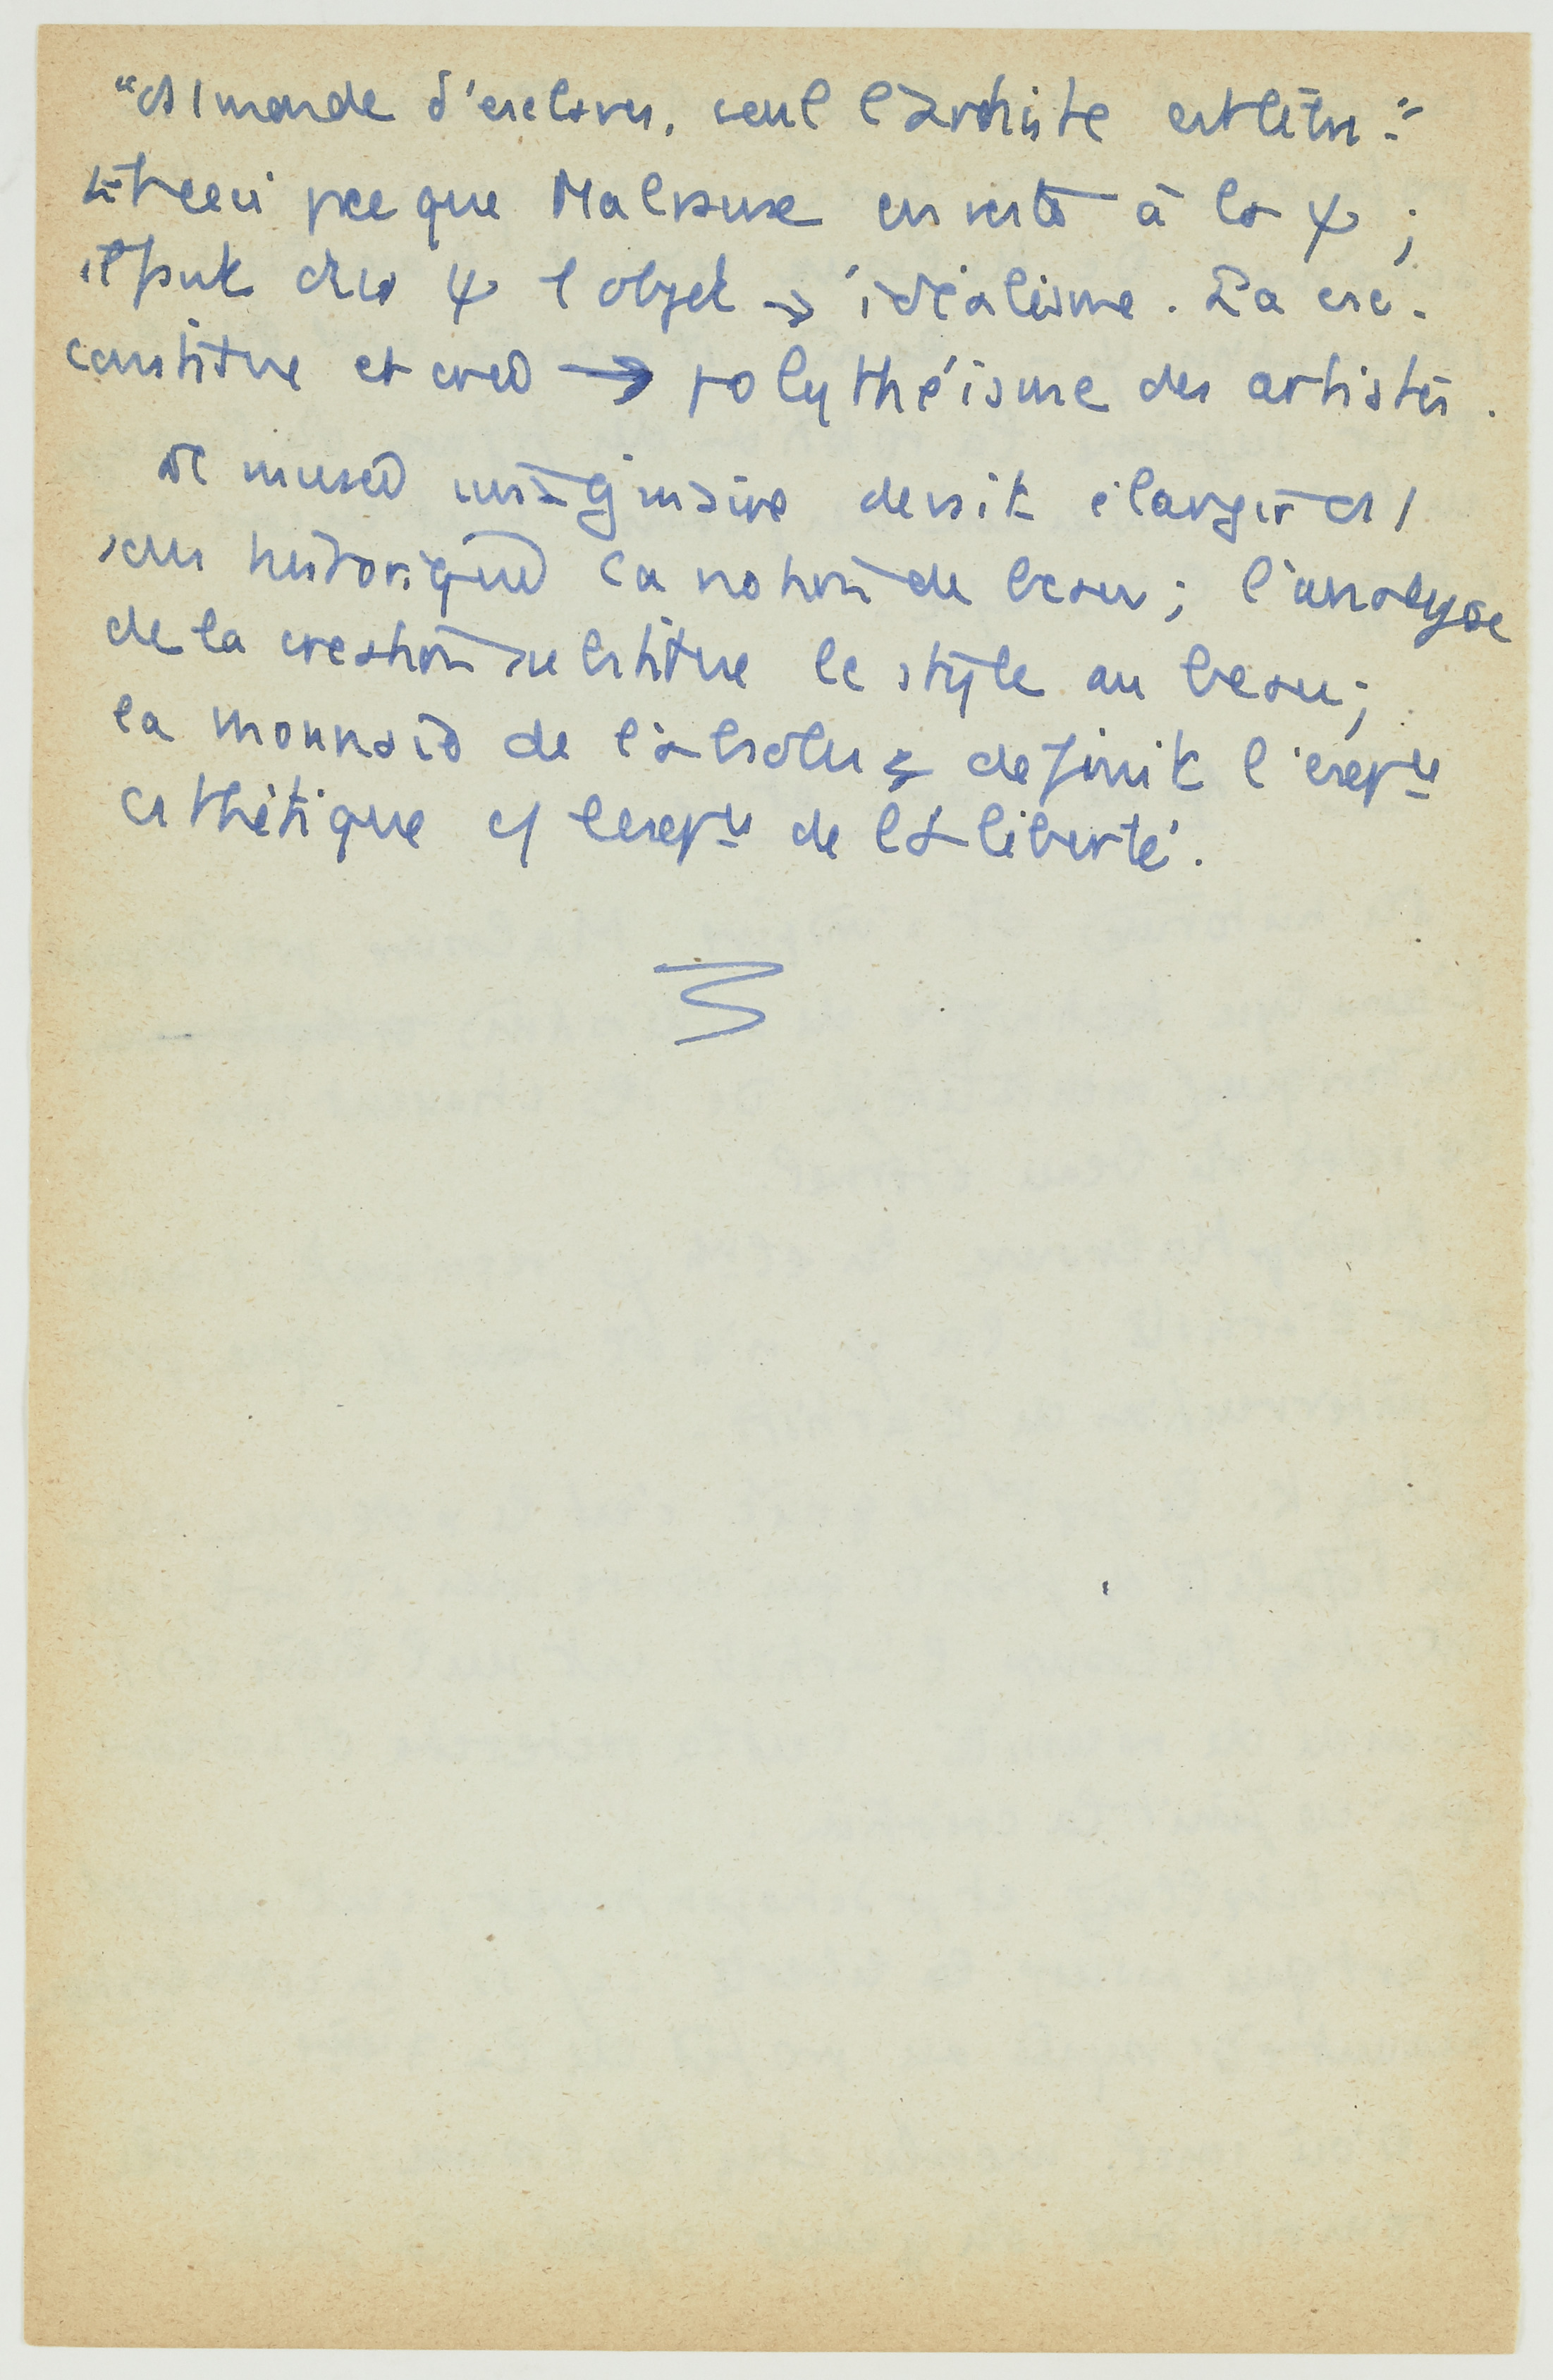 "ds 1 monde d'esclaves, seul l'artiste est libre."
et ceci pce que Malraux en reste à la ψ ;
il fait de la ψ l'objet → idéalisme. La csc.
constitue et crée → polythéisme des artistes.
Le musée imaginaire devait élargir ds 1
sens historique la notion de beau ; l'analyse
de la création substitue le style au beau ;
la monnaie de l'absolu définit l'expce
esthétique c/ l'expce de la liberté.